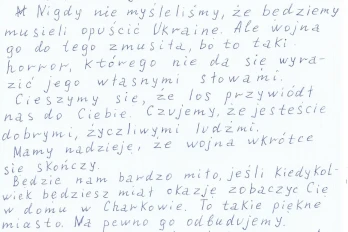 Nigdy nie myśleliśmy, że będziemy
musieli opuścić Ukraine. Ale wojna
go do tego zmusiła, bo to taki
horror, którego nie da się wyra-
zić jego własnymi słowami.
Cieszymy się, że los przywiódł
nas do Ciebie. Czujemy, że jesteście
dobrymi, życzliwymi ludźmi.
Mamy nadzieję, że wojna wkrótce
się skończy.
Będzie nam bardzo miło, jeśli kiedykol-
wiek będziesz miał okazję zobaczyć Cię
w domu w Charkowie. To takie piękne
miasto. Na pewno go odbudujemy.